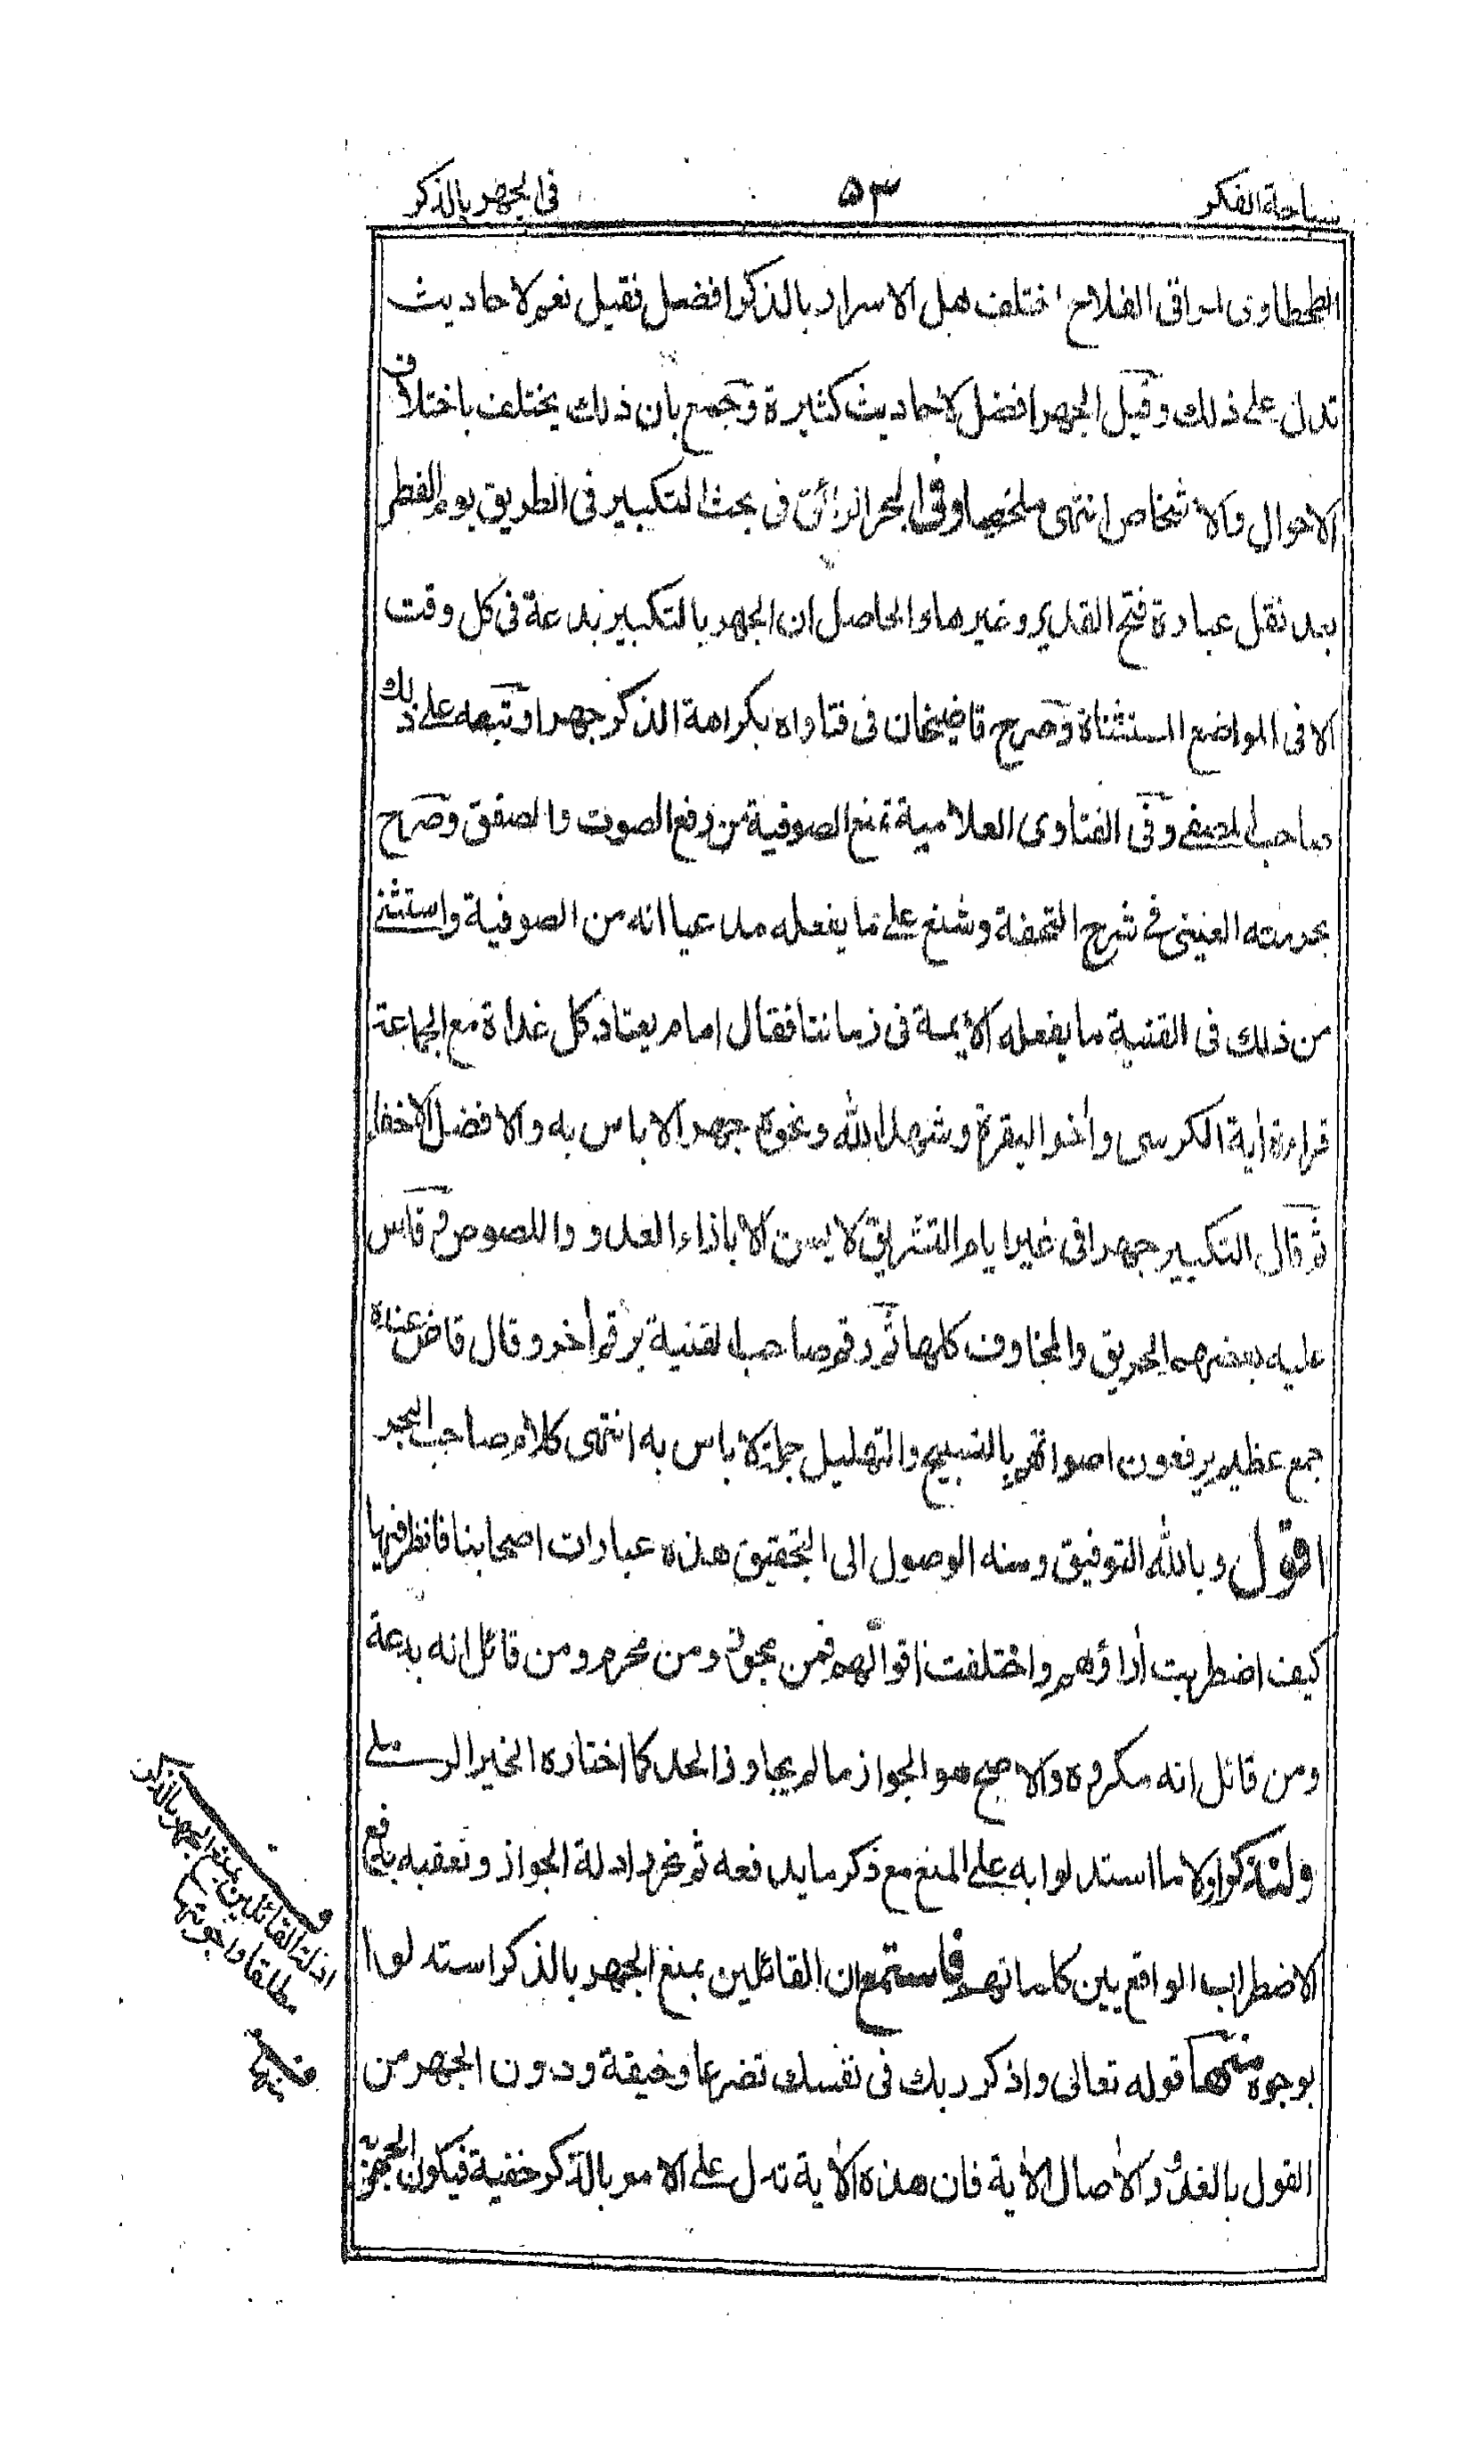 سباحة الفكر ۵۳ فى الجهر بالذكر
الطحطاوى لمراقى الفلاح اختلف هل الاسرار بالذكر افضل فقيل نعم لاحاديث
تدل على ذلك وقيل الجهر افضل لاحاديث كثيرة وجمع بان ذلك يختلف باختلاف
الاحوال والاشخاص انتهى ملخصا وفى البحر الرائق فى بحث التكبير فى الطريق يوم الفطر
بعد نقل عبارة فتح القدير وغيرها والحاصل ان الجهر بالتكبير بدعة فى كل وقت
الا فى المواضع المستثناة وصرح قاضيخان فى فتاواه بكراهة الذكر جهرا وتبعه على ذلك
صاحب المصفى وفى الفتاوى العلامية تمنع الصوفية من رفع الصوت والصفق وصرح
بحرمته العينى فى شرح التحفة وشنع على ما يفعله مدعيا انه من الصوفية واستثنى
من ذلك فى القنية ما يفعله الايمة فى زماننا فقال امام يعتاد كل غداة مع الجماعة
قراءة اية الكرسى واخر البقرة وشهد الله ونحوه جهرا لا باس به والافضل الاخفاء
ثم قال التكبير جهرا فى غير ايام التشريق لا يسن الا باذاء العدو واللصوص وقاس
عليه بعضهم الحريق والمخاوف كلها ثم رقم صاحب القنية برقم اخر وقال قاض عنده
جمع عظيم يرفعون اصواتهم بالتسبيح والتهليل جملة لا باس به انتهى كلام صاحب البحر
اقول وبالله التوفيق ومنه الوصول الى التحقيق هذه عبارات اصحابنا فانظر فيها
كيف اضطربت اراؤهم واختلفت اقوالهم فمن مجوز ومن محرم ومن قائل انه بدعة
ومن قائل انه مكروه والاصح هو الجواز ما لم يجاوز الحد كما اختاره الخير الرملى
ولنذكر اولا ما استدلوا به على المنع مع ذكر ما يدفعه ثم نحرر ادلة الجواز ونعقبه بدفع
الاضطراب الواقع بين كلماتهم فاستمع ان القائلين بمنع الجهر بالذكر استدلوا
بوجوه منها قوله تعالى واذكر ربك فى نفسك تضرعا وخيفة ودون الجهر من
القول بالغدو والاصال الاية فان هذه الاية تدل على الامر بالذكر خفية فيكون الجهر
ادلة القائلين بمنع الجهر بالذكر
مطلقا واجوبتها